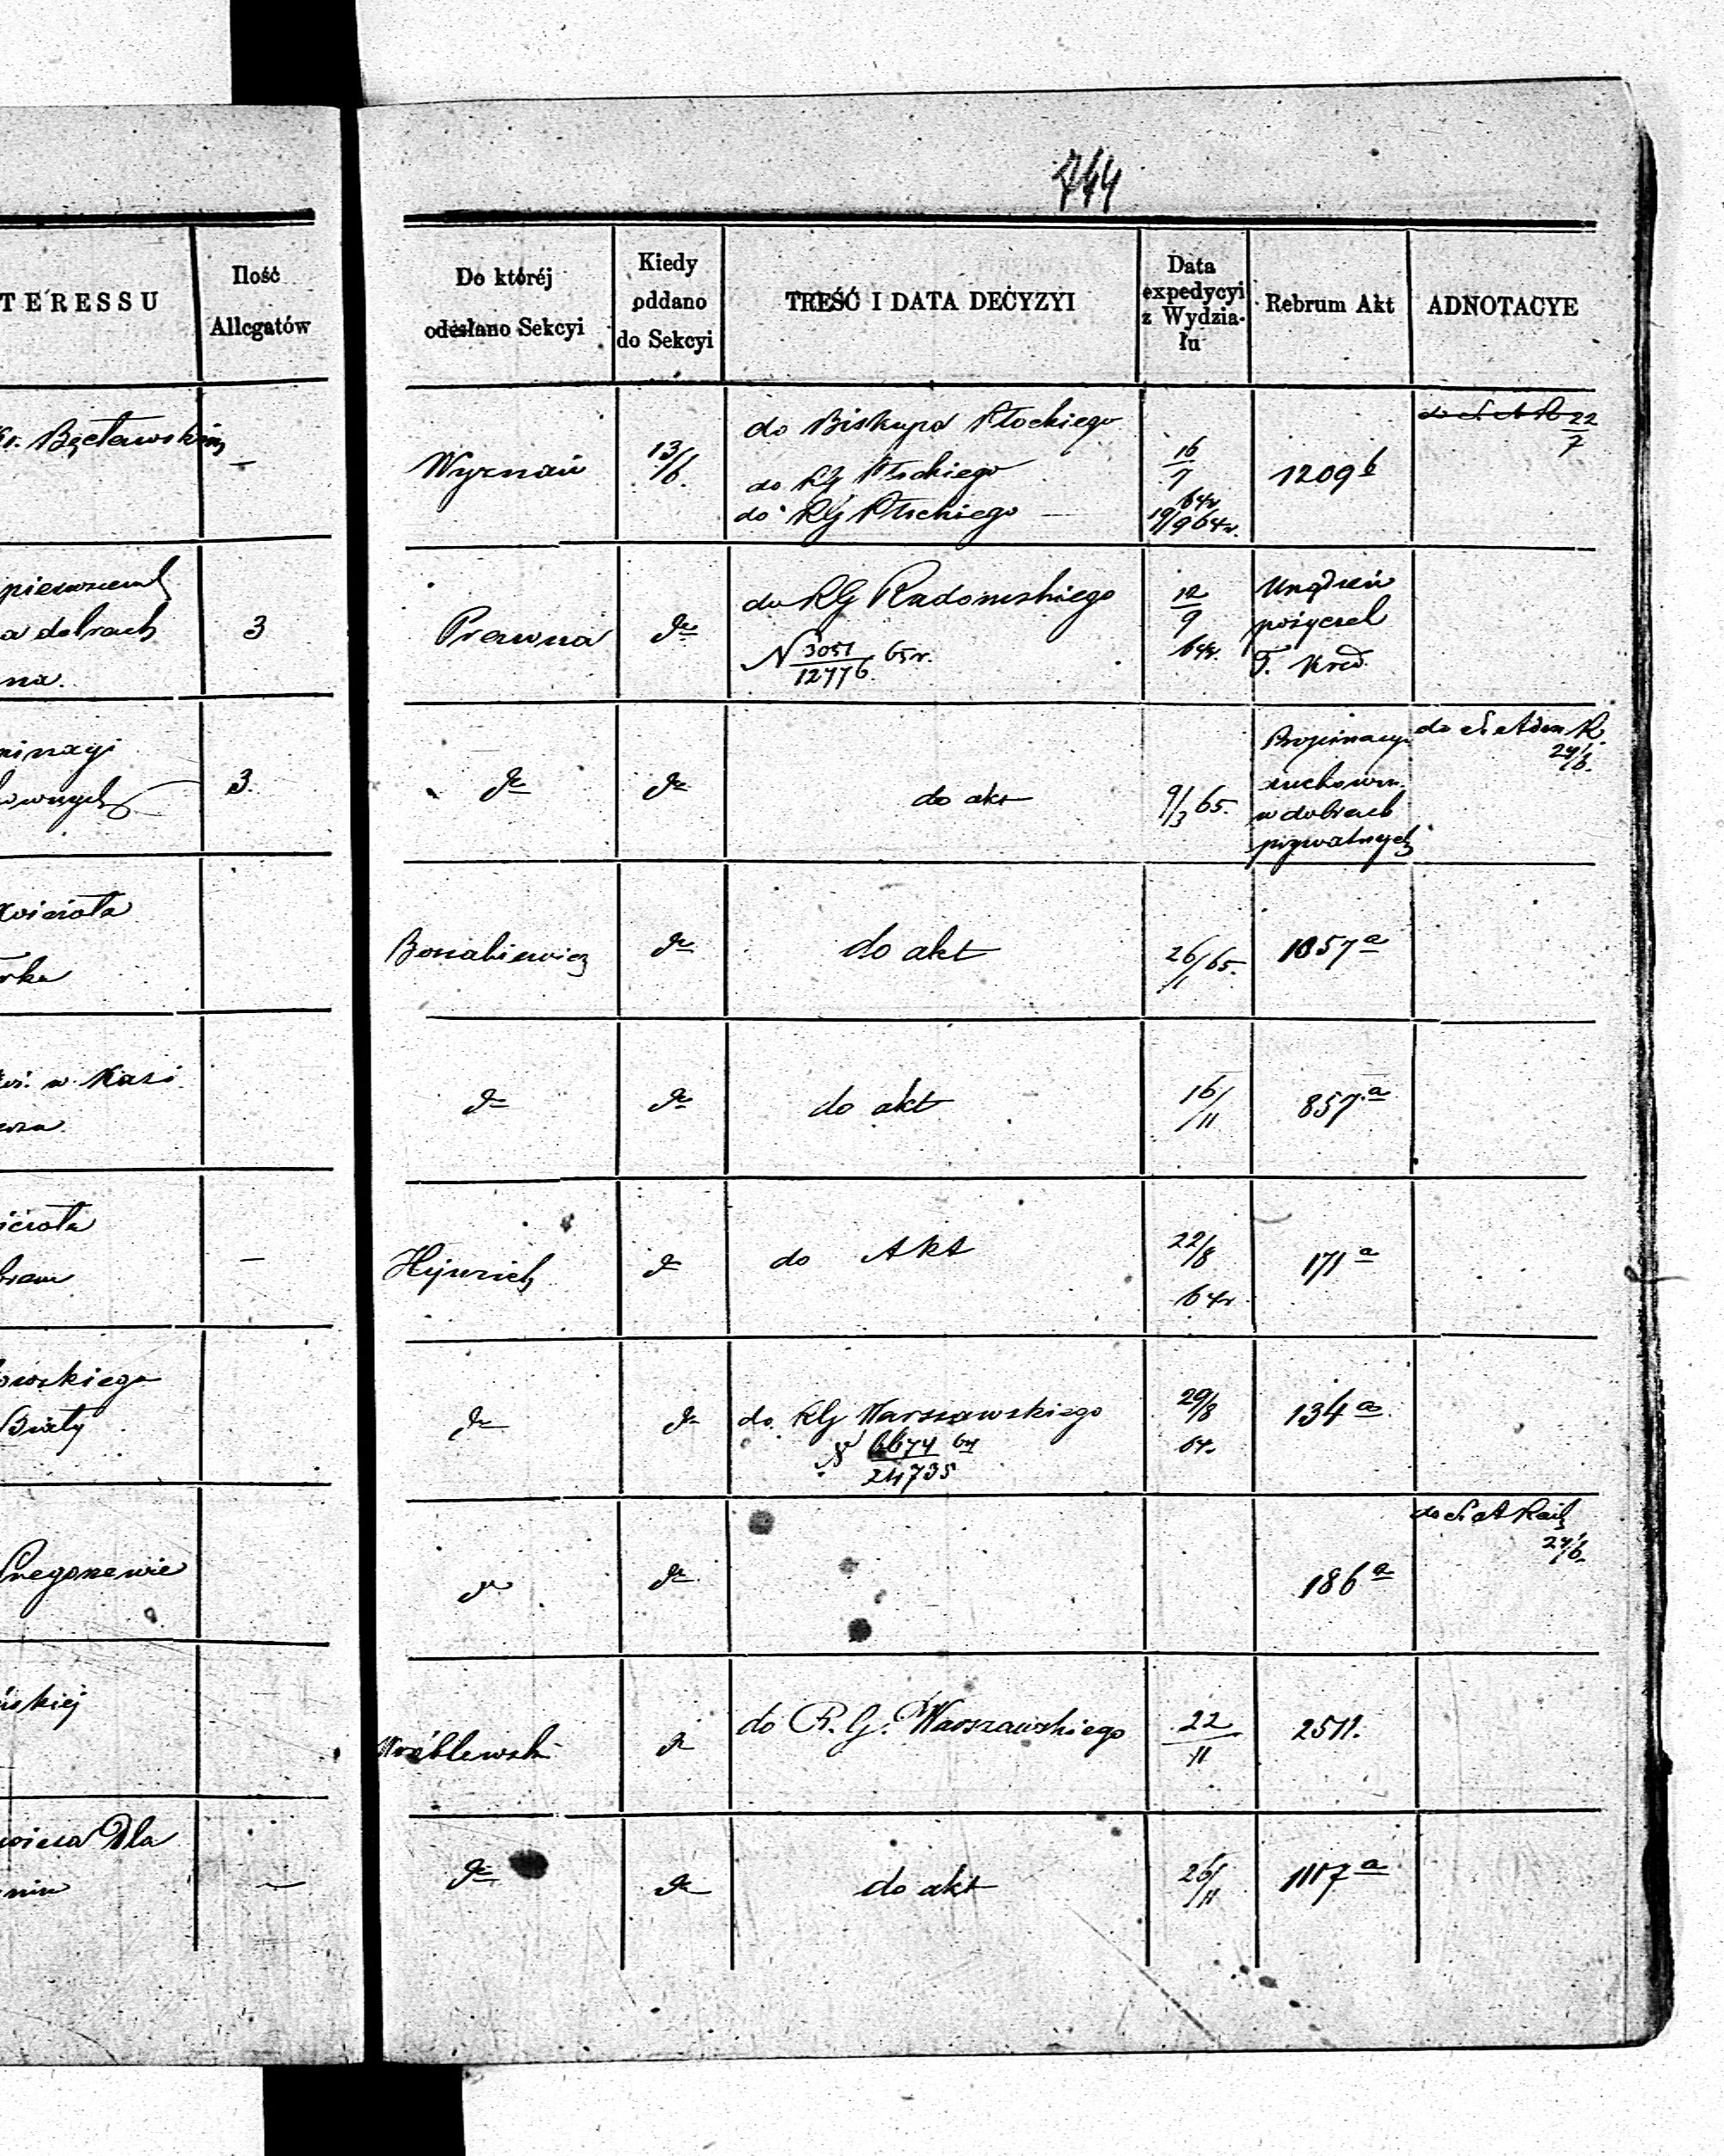 744
TERESSU
Ilość
Allegatów
Do któréj
odesłano Sekcyi
Kiedy
oddano
do Sekcyi
TREŚĆ I DATA DECYZYI
Data
expedycyi
z Wydzia-
łu
Rebrum Akt
ADNOTACYE
Wyznań
13/6.
do Biskupa Płockiego
do RG Płockiego
do RG Płockiego
16/7
64r
19/9 64r.
1209 b
22/7
pierwszeń
a dobrach
na.
3
Prawna
do
do RG Radomskiego
N 3051/12776 65r.
12/9
64r.
Urządzeń
pożyczek
T. Kred.
3.
do
do
do akt
9/3 65.
Propinacyi
duchown.
w dobrach
prywatnych
24/6.
rka
Bonakiewicz
do
do akt
26/1 65.
1057 a
w Kazi
do
do
do akt
16/11
857 a
—
Hejnrich
do
do Akt
22/8
64r
171 a
owskiego
Biały
do
do
do RG Warszawskiego
N 6674/24735 64
29/8
64.
134 a
do
do
186 a
24/6.
ńskiej
Wróblewski
do
do R. G. Warszawskiego
22/11
2511.
wicza Dla
—
do
do
do akt
26/11
1117 a